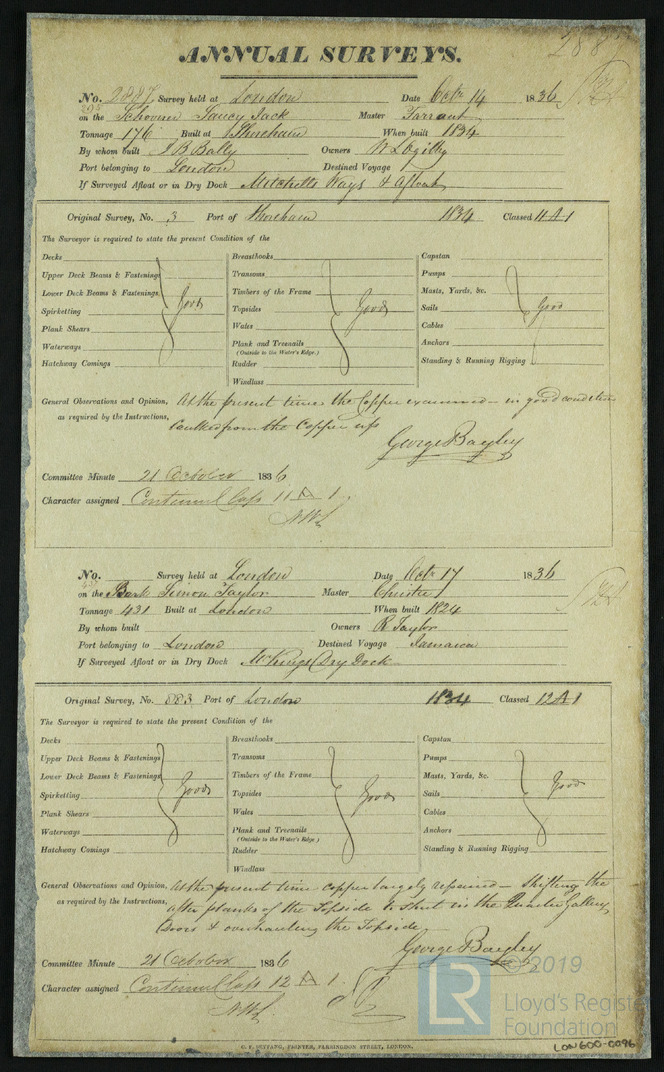 ANNUAL SURVEYS.
No. 2887 Survey held at London Date Octr 14 1836
on the Schooner Saucy Jack Master Tarrant
Tonnage 176 Built at Shoreham When built 1834
By whom built J B Bally Owners W L Ogilby
Port belonging to London Destined Voyage
If Surveyed Afloat or in Dry Dock Mitchells Ways & Afloat
Original Survey, No. 3 Port of Shoreham 1834 Classed 11 A 1
The Surveyor is required to state the present Condition of the
Decks Breasthooks Capstan
Upper Deck Beams & Fastenings Transoms Pumps
Lower Deck Beams & Fastenings Timbers of the Frame Masts, Yards, &c.
Spirketting Good Topsides Good Sails Good
Plank Shears Wales Cables
Waterways Plank and Treenails Anchors
(Outside to the Water's Edge.)
Hatchway Comings Rudder Standing & Running Rigging
Windlass
General Observations and Opinion, At the present time the Copper examined in good condition
as required by the Instructions, caulked from the Copper up
George Bayley
Committee Minute 21 October 1836
Character assigned Continued 11 A 1
No. Survey held at London Date Octr 17 1836
on the Bark Simon Taylor Master Christie
Tonnage 431 Built at London When built 1824
By whom built Owners R Taylor
Port belonging to London Destined Voyage Jamaica
If Surveyed Afloat or in Dry Dock Mr Kings Dry Dock
Original Survey, No. 883 Port of London 1834 Classed 12 A 1
The Surveyor is required to state the present Condition of the
Decks Breasthooks Capstan
Upper Deck Beams & Fastenings Transoms Pumps
Lower Deck Beams & Fastenings Timbers of the Frame Masts, Yards, &c.
Spirketting Good Topsides Good Sails Good
Plank Shears Wales Cables
Waterways Plank and Treenails Anchors
(Outside to the Water's Edge.)
Hatchway Comings Rudder Standing & Running Rigging
Windlass
General Observations and Opinion, At the present time copper largely repaired - Shifting the
as required by the Instructions, after planks of the Topside to shut in the Quarter Gallery
Doors & overhauling the Topside
George Bayley
Committee Minute 21 October 1836
Character assigned Continued 12 A 1
© 2019
LR Lloyd's Register
Foundation
LON600-0096